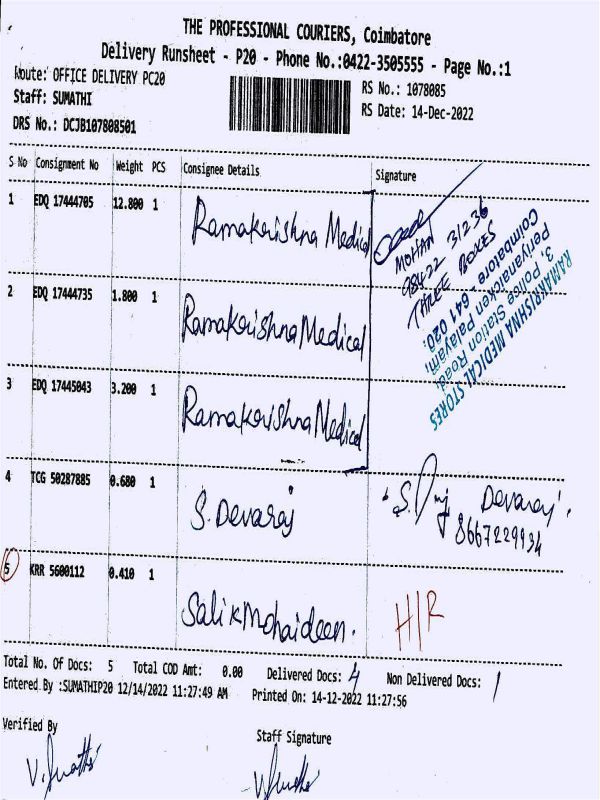 THE PROFESSIONAL COURIERS, Coimbatore
Delivery Runsheet - P20 - Phone No.:0422-3505555 - Page No.:1
Route: OFFICE DELIVERY PC20
RS No.: 1078085
Staff: SUMATHI
RS Date: 14-Dec-2022
DRS No.: DCJB107808501
S No Consignment No Weight PCS Consignee Details Signature
1 EDQ 17444705 12.800 1 Ramakrishna Medical
MOHAN
98422 31236
THREE BOXES
RAMAKRISHNA MEDICAL STORES
3, Police Station Road,
Periyanaicken Palayam,
Coimbatore - 641 020.
2 EDQ 17444735 1.800 1 Ramakrishna Medical
3 EDQ 17445043 3.200 1 Ramakrishna Medical
4 TCG 50287885 0.680 1 S. Devaraj
Devaraj
8667229934
5 KRR 5600112 0.410 1 Salikmohaideen. H/R
Total No. Of Docs: 5 Total COD Amt: 0.00 Delivered Docs: 4 Non Delivered Docs: 1
Entered By :SUMATHIP20 12/14/2022 11:27:49 AM Printed On: 14-12-2022 11:27:56
Verified By
Staff Signature